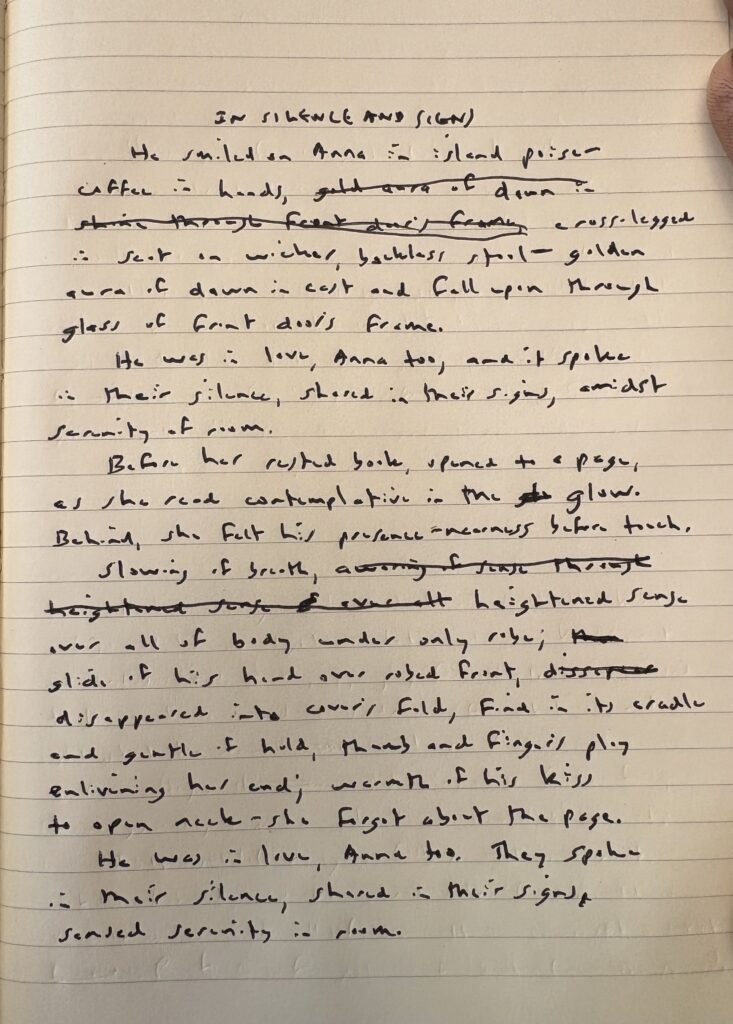 IN SILENCE AND SIGNS
He smiled on Anna in island poise—
coffee in hands, gold aura of dawn in
shine through front door's frame, cross-legged
in seat on wicker, backless stool—golden
aura of dawn in east and fall upon through
glass of front door's frame.
He was in love, Anna too, and it spoke
in their silence, shared in their signs, amidst
serenity of room.
Before her rested book, opened to a page,
as she read contemplative in the glow.
Behind, she felt his presence—nearness before touch.
Slowing of breath, awaring of sense through
heightened sense of over all heightened sense
over all of body under only robe;
glide of his hand over robed front,
disappeared into cover's fold, find in its cradle
and gentle of hold, thumb and finger's play
enlivening her end; warmth of his kiss
to open neck—she forgot about the page.
He was in love, Anna too. They spoke
in their silence, shared in their signs,
sensed serenity in room.